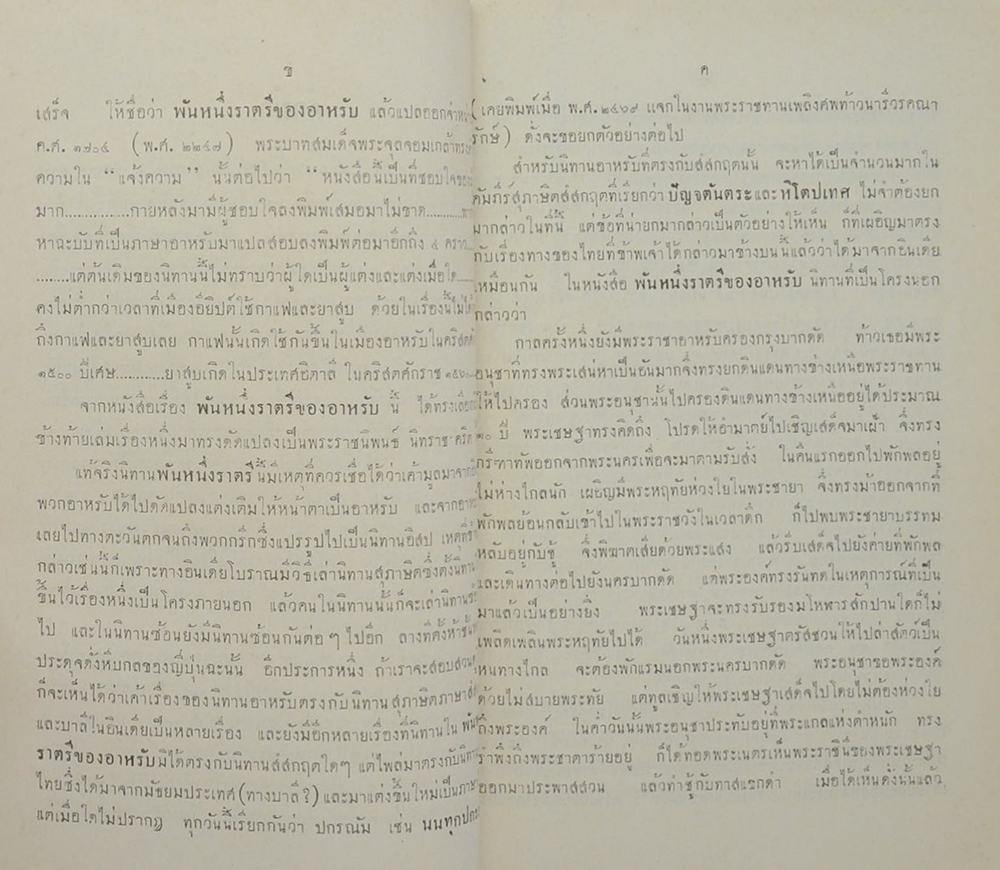 ข
เสร็จ ให้ชื่อว่า พันหนึ่งราตรีของอาหรับ แล้วแปลออกจำหน่
ค.ศ. ๑๗๐๔ (พ.ศ. ๒๒๔๗) พระบาทสมเด็จพระจุลจอมเกล้าทรง
ความใน “แจ้งความ” นั้นต่อไปว่า “หนังสือนี้เป็นที่ชอบใจของ
มาก...............ภายหลังมามีผู้ชอบใจลงพิมพ์เสมอมาไม่ขาด..........
หาฉะบับที่เป็นภาษาอาหรับมาแปลสอบลงพิมพ์ต่อมาอีกถึง ๔ คราว....
........แต่ต้นเดิมของนิทานนี้ไม่ทราบว่าผู้ใดเป็นผู้แต่งและแต่งเมื่อใด....
คงไม่ต่ำกว่าเวลาที่เมืองอียิปต์ใช้กาแฟและยาสูบ ด้วยในเรื่องนี้ไม่ได้
ถึงกาแฟและยาสูบเลย กาแฟนั้นเกิดใช้กันขึ้นในเมืองอาหรับในคริสตศั
๑๕๐๐ ปีเศษ...........ยาสูบเกิดในประเทศอิตาลี ในคริสตศักราช
จากหนังสือเรื่อง พันหนึ่งราตรีของอาหรับ นี้ ได้ทรงเลือก
ข้างท้ายเล่มเรื่องหนึ่งมาทรงดัดแปลงเป็นพระราชนิพนธ์ นิทราชาคริต
แท้จริงนิทานพันหนึ่งราตรีนี้มีเหตุที่ควรเชื่อได้ว่าเค้ามูลมาจาก
พวกอาหรับได้ไปดัดแปลงแต่งเติมให้หน้าตาเป็นอาหรับ และจากอาห
เลยไปทางตะวันตกจนถึงพวกกรีกซึ่งแปรรูปไปเป็นนิทานอีสป เหตุที่
กล่าวเช่นนี้ก็เพราะทางอินเดียโบราณมีวิธีเล่านิทานสุภาษิตซึ่งตั้งนิทาน
ขึ้นไว้เรื่องหนึ่งเป็นโครงภายนอก แล้วคนในนิทานนั้นก็จะเล่านิทาน
ไป และในนิทานซ้อนยังมีนิทานซ้อนกันต่อๆ ไปอีก ลางทีตั้งห้าชั้น
ประดุจดั่งหีบกลของญี่ปุ่นฉะนั้น อีกประการหนึ่ง ถ้าเราจะสอบสวน
ก็จะเห็นได้ว่าเค้าเรื่องของนิทานอาหรับตรงกับนิทานสุภาษิตภาษาสํ
และบาลีในอินเดียเป็นหลายเรื่อง และยังมีอีกหลายเรื่องที่นิทานใน พัน
ราตรีของอาหรับมิได้ตรงกับนิทานสํสกฤตใดๆ แต่ไพล่มาตรงกับนิทาน
ไทยซึ่งได้มาจากมัธยมประเทศ (ทางบาลี ?) และมาแต่งขึ้นใหม่เป็นภาษ
แต่เมื่อใดไม่ปรากฏ ทุกวันนี้เรียกกันว่า ปกรณัม เช่น นนทุกปกร
ค
(เคยพิมพ์เมื่อ พ.ศ. ๒๔๖๙ แจกในงานพระราชทานเพลิงศพท้าวนารีวรคณา
รักษ์) ดั่งจะขอยกตัวอย่างต่อไป
สำหรับนิทานอาหรับที่ตรงกับสํสกฤตนั้น จะหาได้เป็นจำนวนมากใน
คัมภีร์สุภาษิตสํสกฤตที่เรียกว่า ปัญจตันตระและหิโตปเทศ ไม่จำต้องยก
มากล่าวในที่นี้ แต่ข้อที่น่ายกมากล่าวเป็นตัวอย่างให้เห็น ก็ที่เผอิญมาตรง
กับเรื่องทางของไทยที่ข้าพเจ้าได้กล่าวมาข้างบนนี้แล้วว่าได้มาจากอินเดีย
เหมือนกัน ในหนังสือ พันหนึ่งราตรีของอาหรับ นิทานที่เป็นโครงนอก
กล่าวว่า
กาลครั้งหนึ่งยังมีพระราชาอาหรับครองกรุงบากดัด ท้าวเธอมีพระ
อนุชาที่ทรงพระเสน่หาเป็นอันมากจึ่งทรงยกดินแดนทางข้างเหนือพระราชทาน
ให้ไปครอง ส่วนพระอนุชานั้นไปครองดินแดนทางข้างเหนืออยู่ได้ประมาณ
๑๐ ปี พระเชษฐาทรงคิดถึง โปรดให้อำมาตย์ไปเชิญเสด็จมาเฝ้า จึ่งทรง
กรีฑาทัพออกจากพระนครเพื่อจะมาตามรับสั่ง ในคืนแรกออกไปพักพลอยู่
ไม่ห่างไกลนัก เผอิญมีพระหฤทัยห่วงใยในพระชายา จึ่งทรงม้าออกจากที่
พักพลย้อนกลับเข้าไปในพระราชวังในเวลาดึก ก็ไปพบพระชายาบรรทม
หลับอยู่กับชู้ จึ่งพิฆาตเสียด้วยพระแสง แล้วรีบเสด็จไปยังค่ายที่พักพล
และเดินทางต่อไปยังนครบากดัด แต่พระองค์ทรงรันทดในเหตุการณ์ที่เป็น
มาแล้วเป็นอย่างยิ่ง พระเชษฐาจะทรงรับรองมโหฬารสักปานใดก็ไม่
เพลิดเพลินพระหฤทัยไปได้ วันหนึ่งพระเชษฐาตรัสชวนให้ไปล่าสัตว์เป็น
หนทางไกล จะต้องพักแรมนอกพระนครบากดัด พระอนุชาขอพระองค์
ด้วยไม่สบายพระทัย แต่ทูลเชิญให้พระเชษฐาเสด็จไปโดยไม่ต้องห่วงใย
ถึงพระองค์ ในค่ำวันนั้นพระอนุชาประทับอยู่ที่พระแกลแห่งตำหนัก ทรง
รำพึงถึงพระชาตาร้ายอยู่ ก็ได้ทอดพระเนตรเห็นพระราชินีของพระเชษฐา
ออกมาประพาสสวน แล้วทำชู้กับทาสแขกดำ เมื่อได้เห็นดั่งนั้นแล้ว